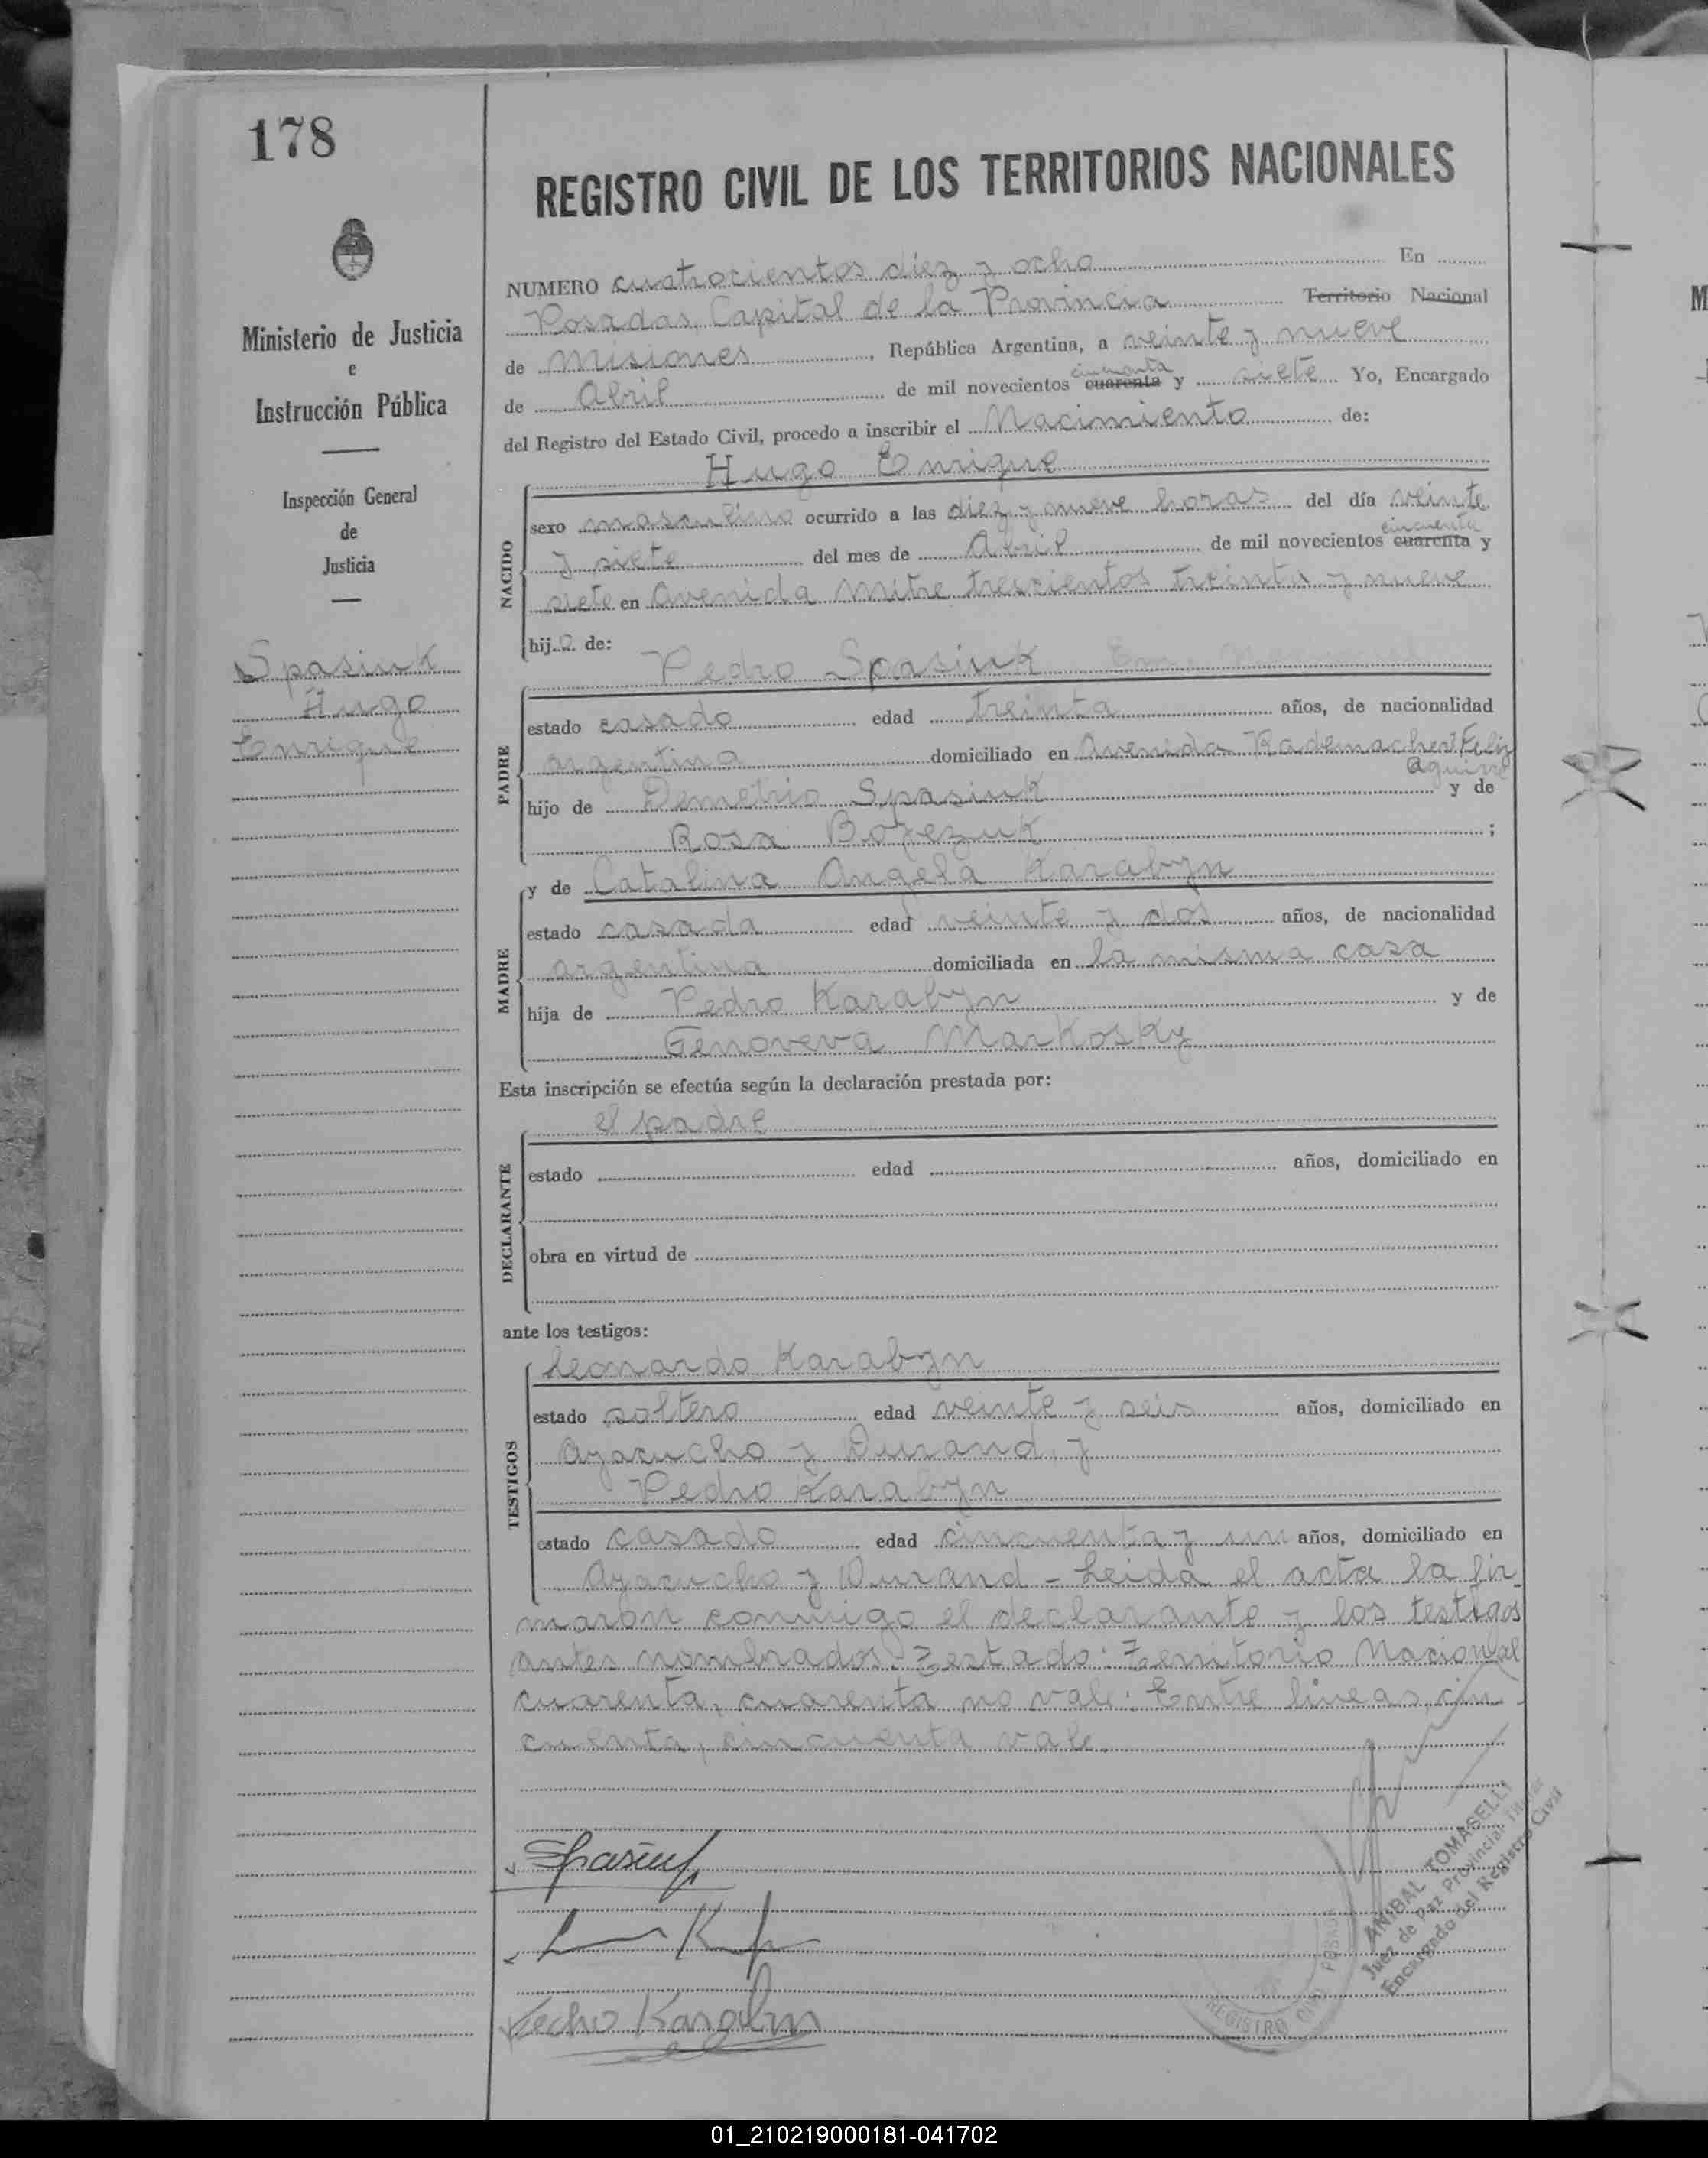 178
REGISTRO CIVIL DE LOS TERRITORIOS NACIONALES
Ministerio de Justicia
e
Instrucción Pública
Inspección General
de
Justicia
Spasiuk
Hugo
Enrique
NUMERO cuatrocientos diez y ocho En
Posadas, Capital de la Provincia Territorio Nacional
de Misiones, República Argentina, a veinte y nueve
cincuenta
de Abril de mil novecientos cuarenta y siete Yo, Encargado
del Registro del Estado Civil, procedo a inscribir el Nacimiento de:
Hugo Enrique
NACIDO
sexo masculino ocurrido a las diez y nueve horas del día veinte
cincuenta
y siete del mes de Abril de mil novecientos cuarenta y
siete en Avenida Mitre trescientos treinta y nueve
hijo de:
Pedro Spasiuk
PADRE
estado casado edad treinta años, de nacionalidad
argentina domiciliado en Avenida Rademacher y Feliz
Aguirre
hijo de Demetrio Spasiuk y de
Rosa ;
MADRE
y de Catalina Angela Karabyn
estado casada edad veinte y dos años, de nacionalidad
argentina domiciliada en la misma casa
hija de Pedro Karabyn y de
Genoveva Markosky
Esta inscripción se efectúa según la declaración prestada por:
el padre
DECLARANTE
estado edad años, domiciliado en
obra en virtud de
ante los testigos:
Leonardo Karabyn
TESTIGOS
estado soltero edad veinte y seis años, domiciliado en
Ayacucho y Durand, y
Pedro Karabyn
estado casado edad cincuenta y un años, domiciliado en
Ayacucho y Durand - Leida el acta la fir
maron conmigo el declarante y los testigos
antes nombrados. Testado: Territorio Nacional
cuarenta, cuarenta no vale: Entre lineas, cin
cuenta, cincuenta vale.
Spasiuk
Pedro Karabyn
ANIBAL TOMASELLI
Juez de Paz Provincial Titular
Encargado del Registro Civil
REGISTRO CIVIL POSADAS
01_210219000181-041702